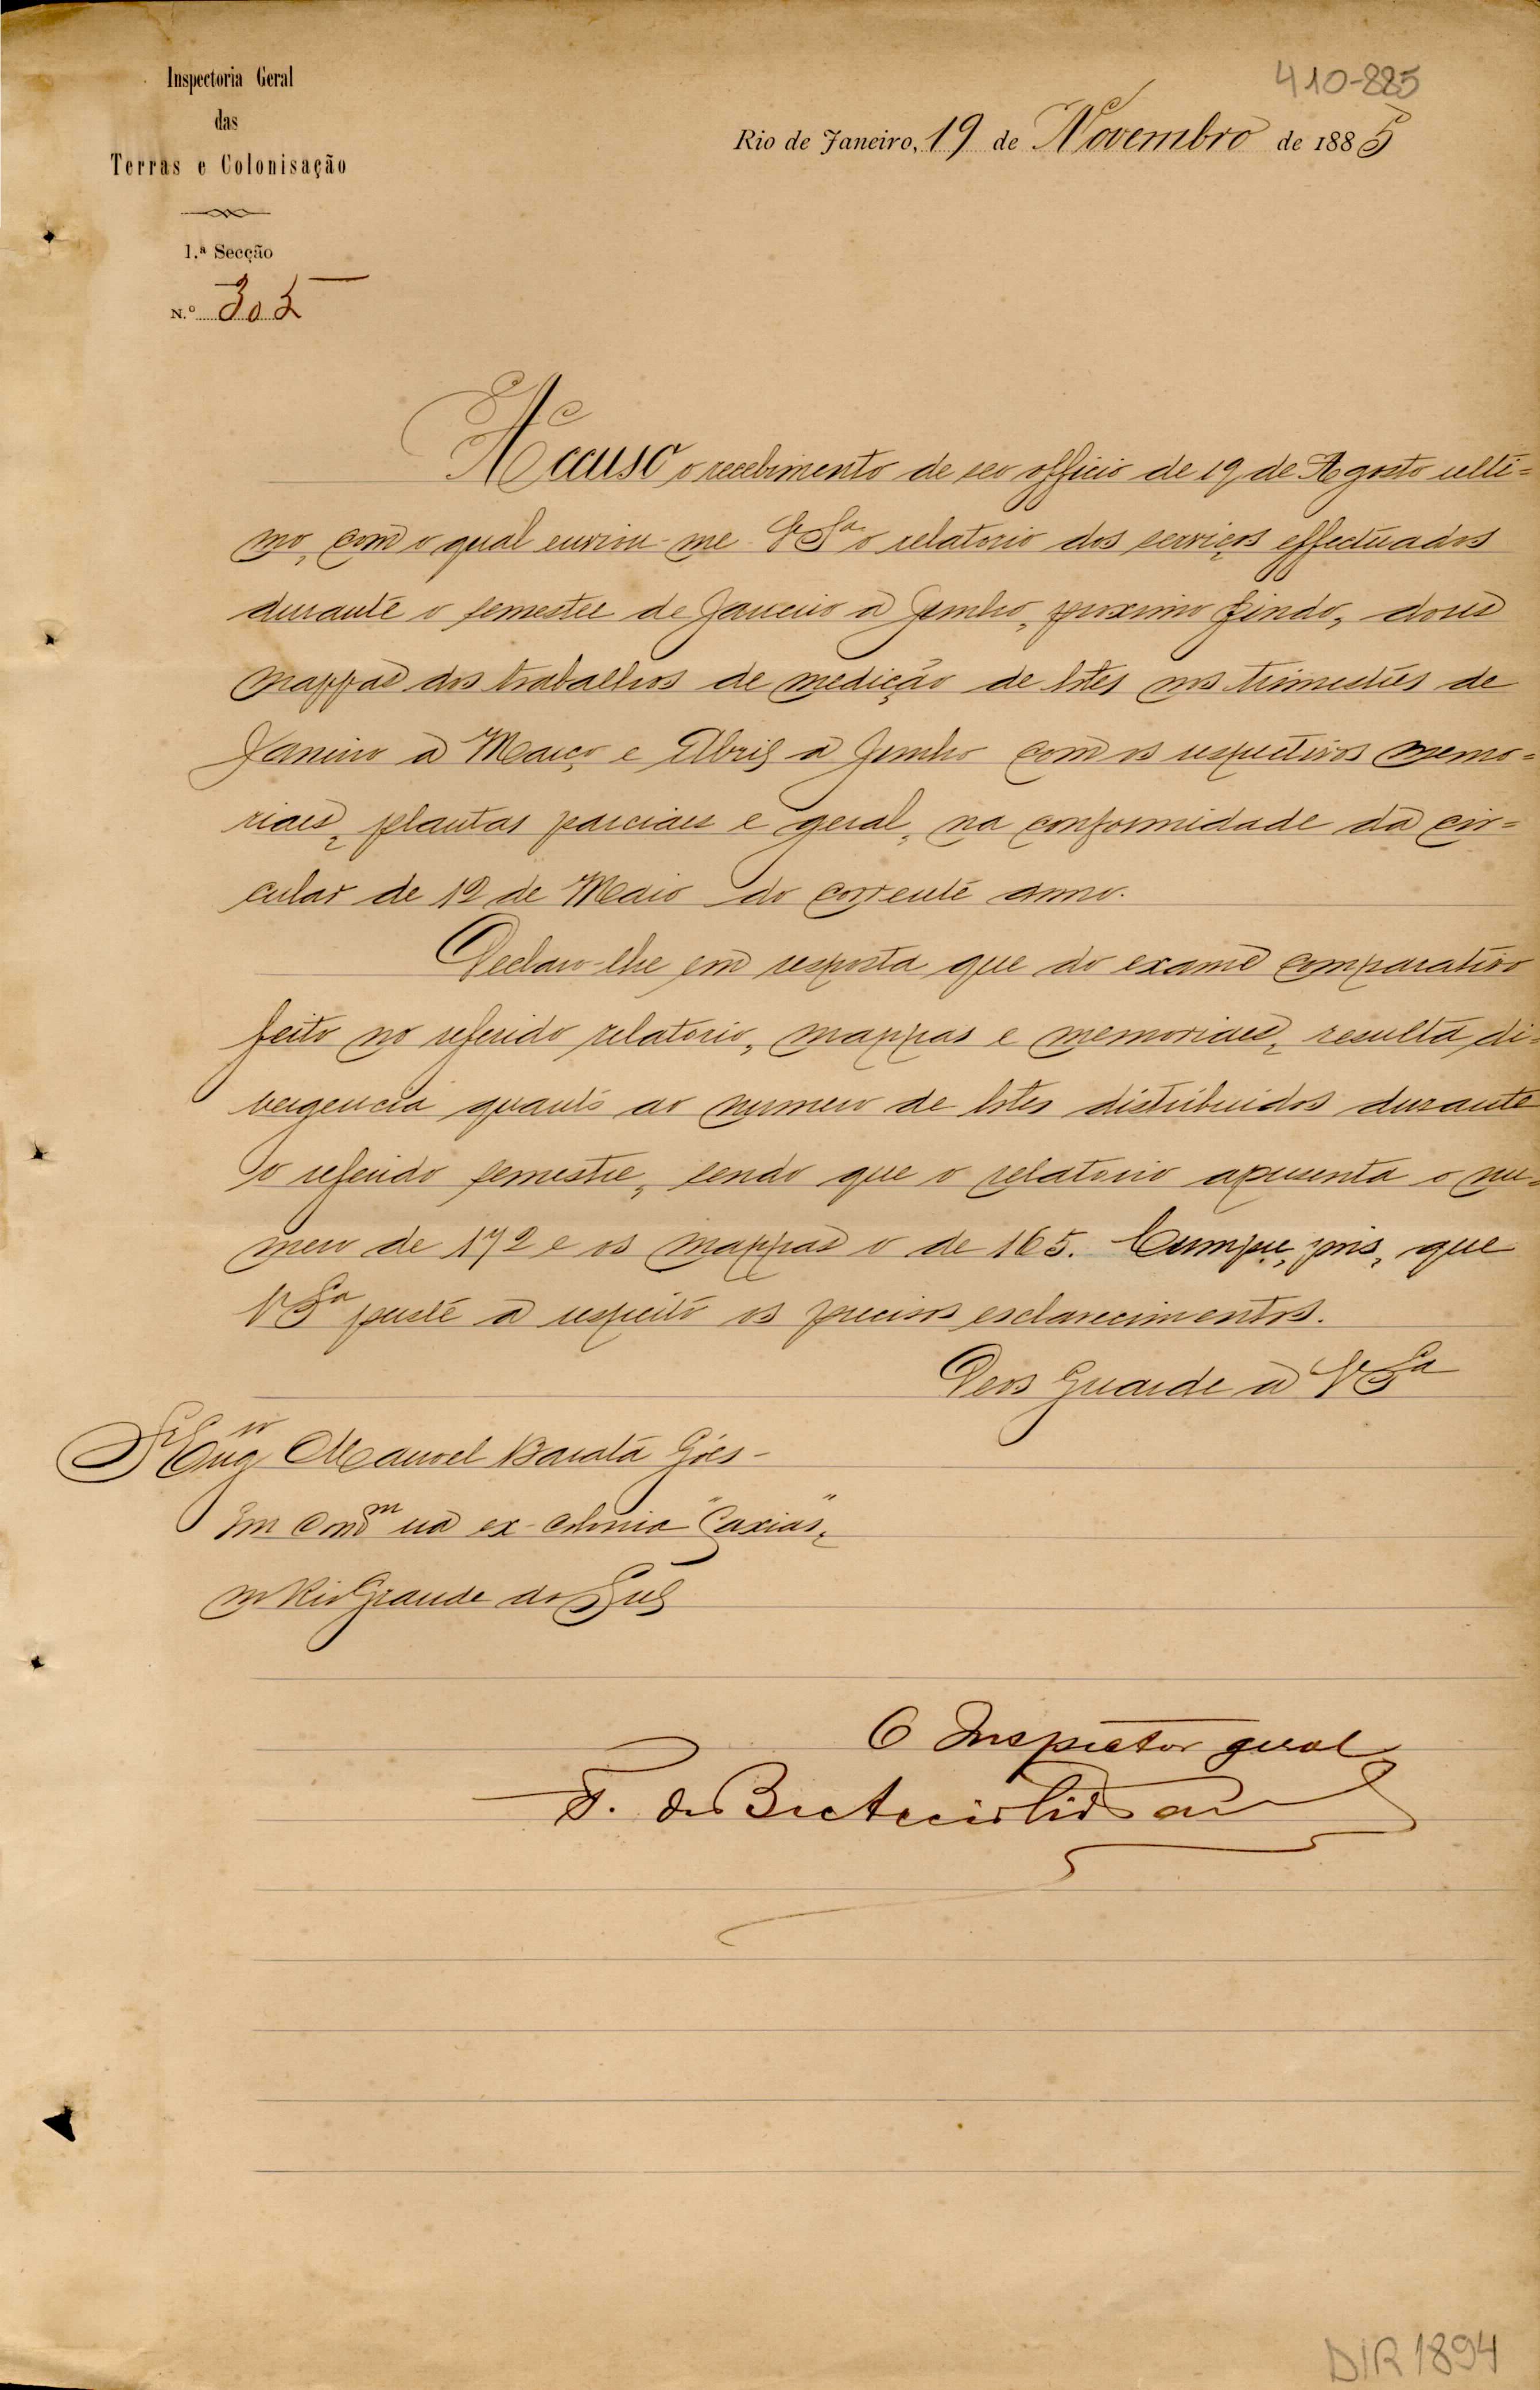 410-885
Inspectoria Geral
das
Terras e Colonisação
1.ª Secção
N.º 305
Rio de Janeiro, 19 de Novembro de 1885
Accuso o recebimento de seo officio de 19 de Agosto ulti=
mo, com o qual enviou-me VSª o relatorio dos serviços effectuados
durante o semestre de Janeiro a Junho, proximo findo, dous
mappas dos trabalhos de medição de lotes nos trimestres de
Janeiro a Março e Abril a Junho com os respectivos memo=
riaes, plantas parciaes e geral, na conformidade da cir=
cular de 12 de Maio do corrente anno.
Declaro-lhe em resposta que do exame comparativo
feito no referido relatorio, mappas e memoriaes, resulta di=
vergencia quanto ao numero de lotes distribuidos durante
o referido semestre, sendo que o relatorio apresenta o nu=
mero de 172 e os mappas o de 165. Cumpre, pois, que
VSª preste a respeito os precisos esclarecimentos.
Deos Guarde a VSª
Sr Engro Manoel Barata Góes-
Em Comm na ex-colonia "Caxias",
no Rio Grande do Sul
O Inspector geral
F. de
DIR 1894